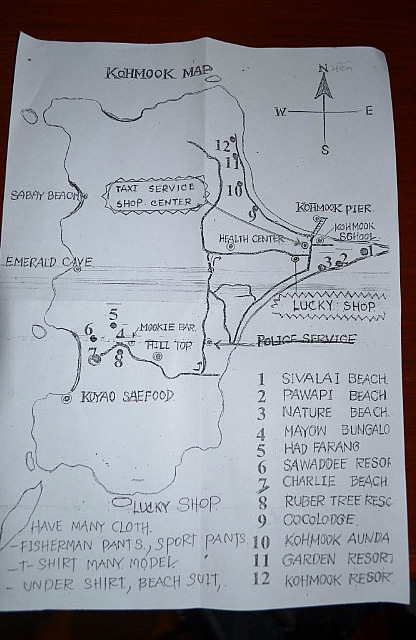 KOHMOOK MAP
N
W E
S
12
11
10
9
TAXI SERVICE
SHOP CENTER
SABAY BEACH
KOHMOOK PIER.
KOHMOOK
SCHOOL
HEALTH CENTER
1
2
3
EMERALD CAVE
LUCKY SHOP
5
MOOKIE BAR
6
4
HILL TOP
POLICE SERVICE
7
8
KUYAO SAEFOOD
1 SIVALAI BEACH
2 PAWAPI BEACH
3 NATURE BEACH
4 MAYOW BUNGALO
5 HAD FARANG
6 SAWADDEE RESOR
7 CHARLIE BEACH
8 RUBER TREE RESC
9 COCOLODGE
10 KOHMOOK AUNDA
11 GARDEN RESORT
12 KOHMOOK RESOR
LUCKY SHOP
HAVE MANY CLOTH.
- FISHERMAN PANTS, SPORT PANTS
- T- SHIRT MANY MODEL
- UNDER SHIRT, BEACH SUIT,